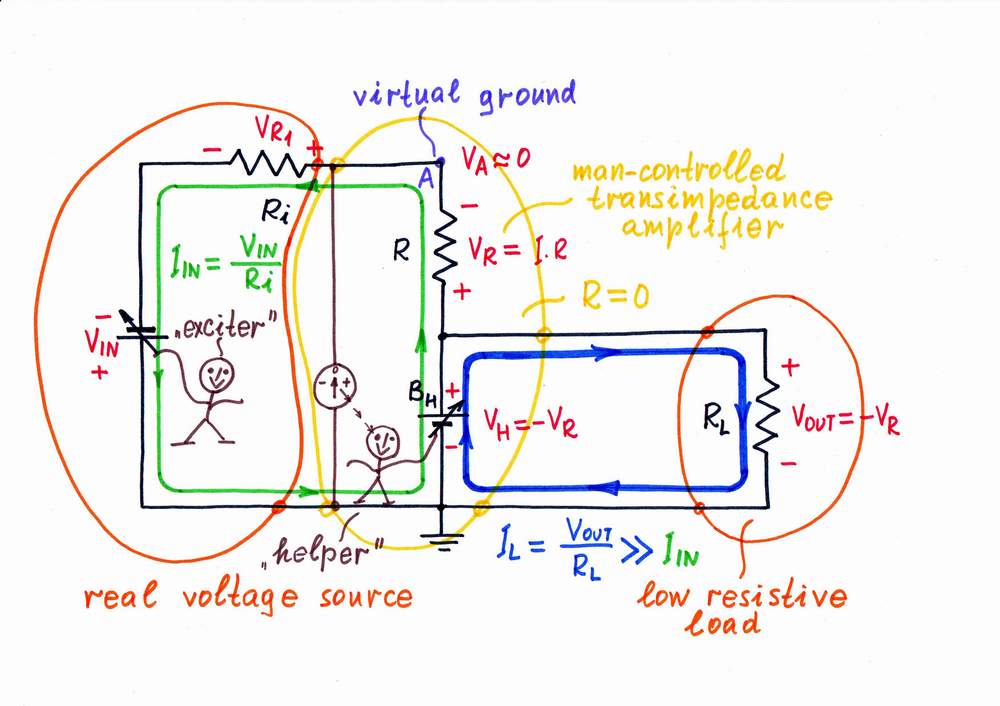 virtual ground
VR1
− +
VA ≈ 0
A
man-controlled
transimpedance
amplifier
Ri
−
R
VR = I.R
IIN = VIN / Ri
+
R = 0
−
VIN
+
„exciter"
− +
BH
+
−
VH = −VR
RL
+
VOUT = −VR
−
„helper"
IL = VOUT / RL >> IIN
real voltage source
low resistive
load